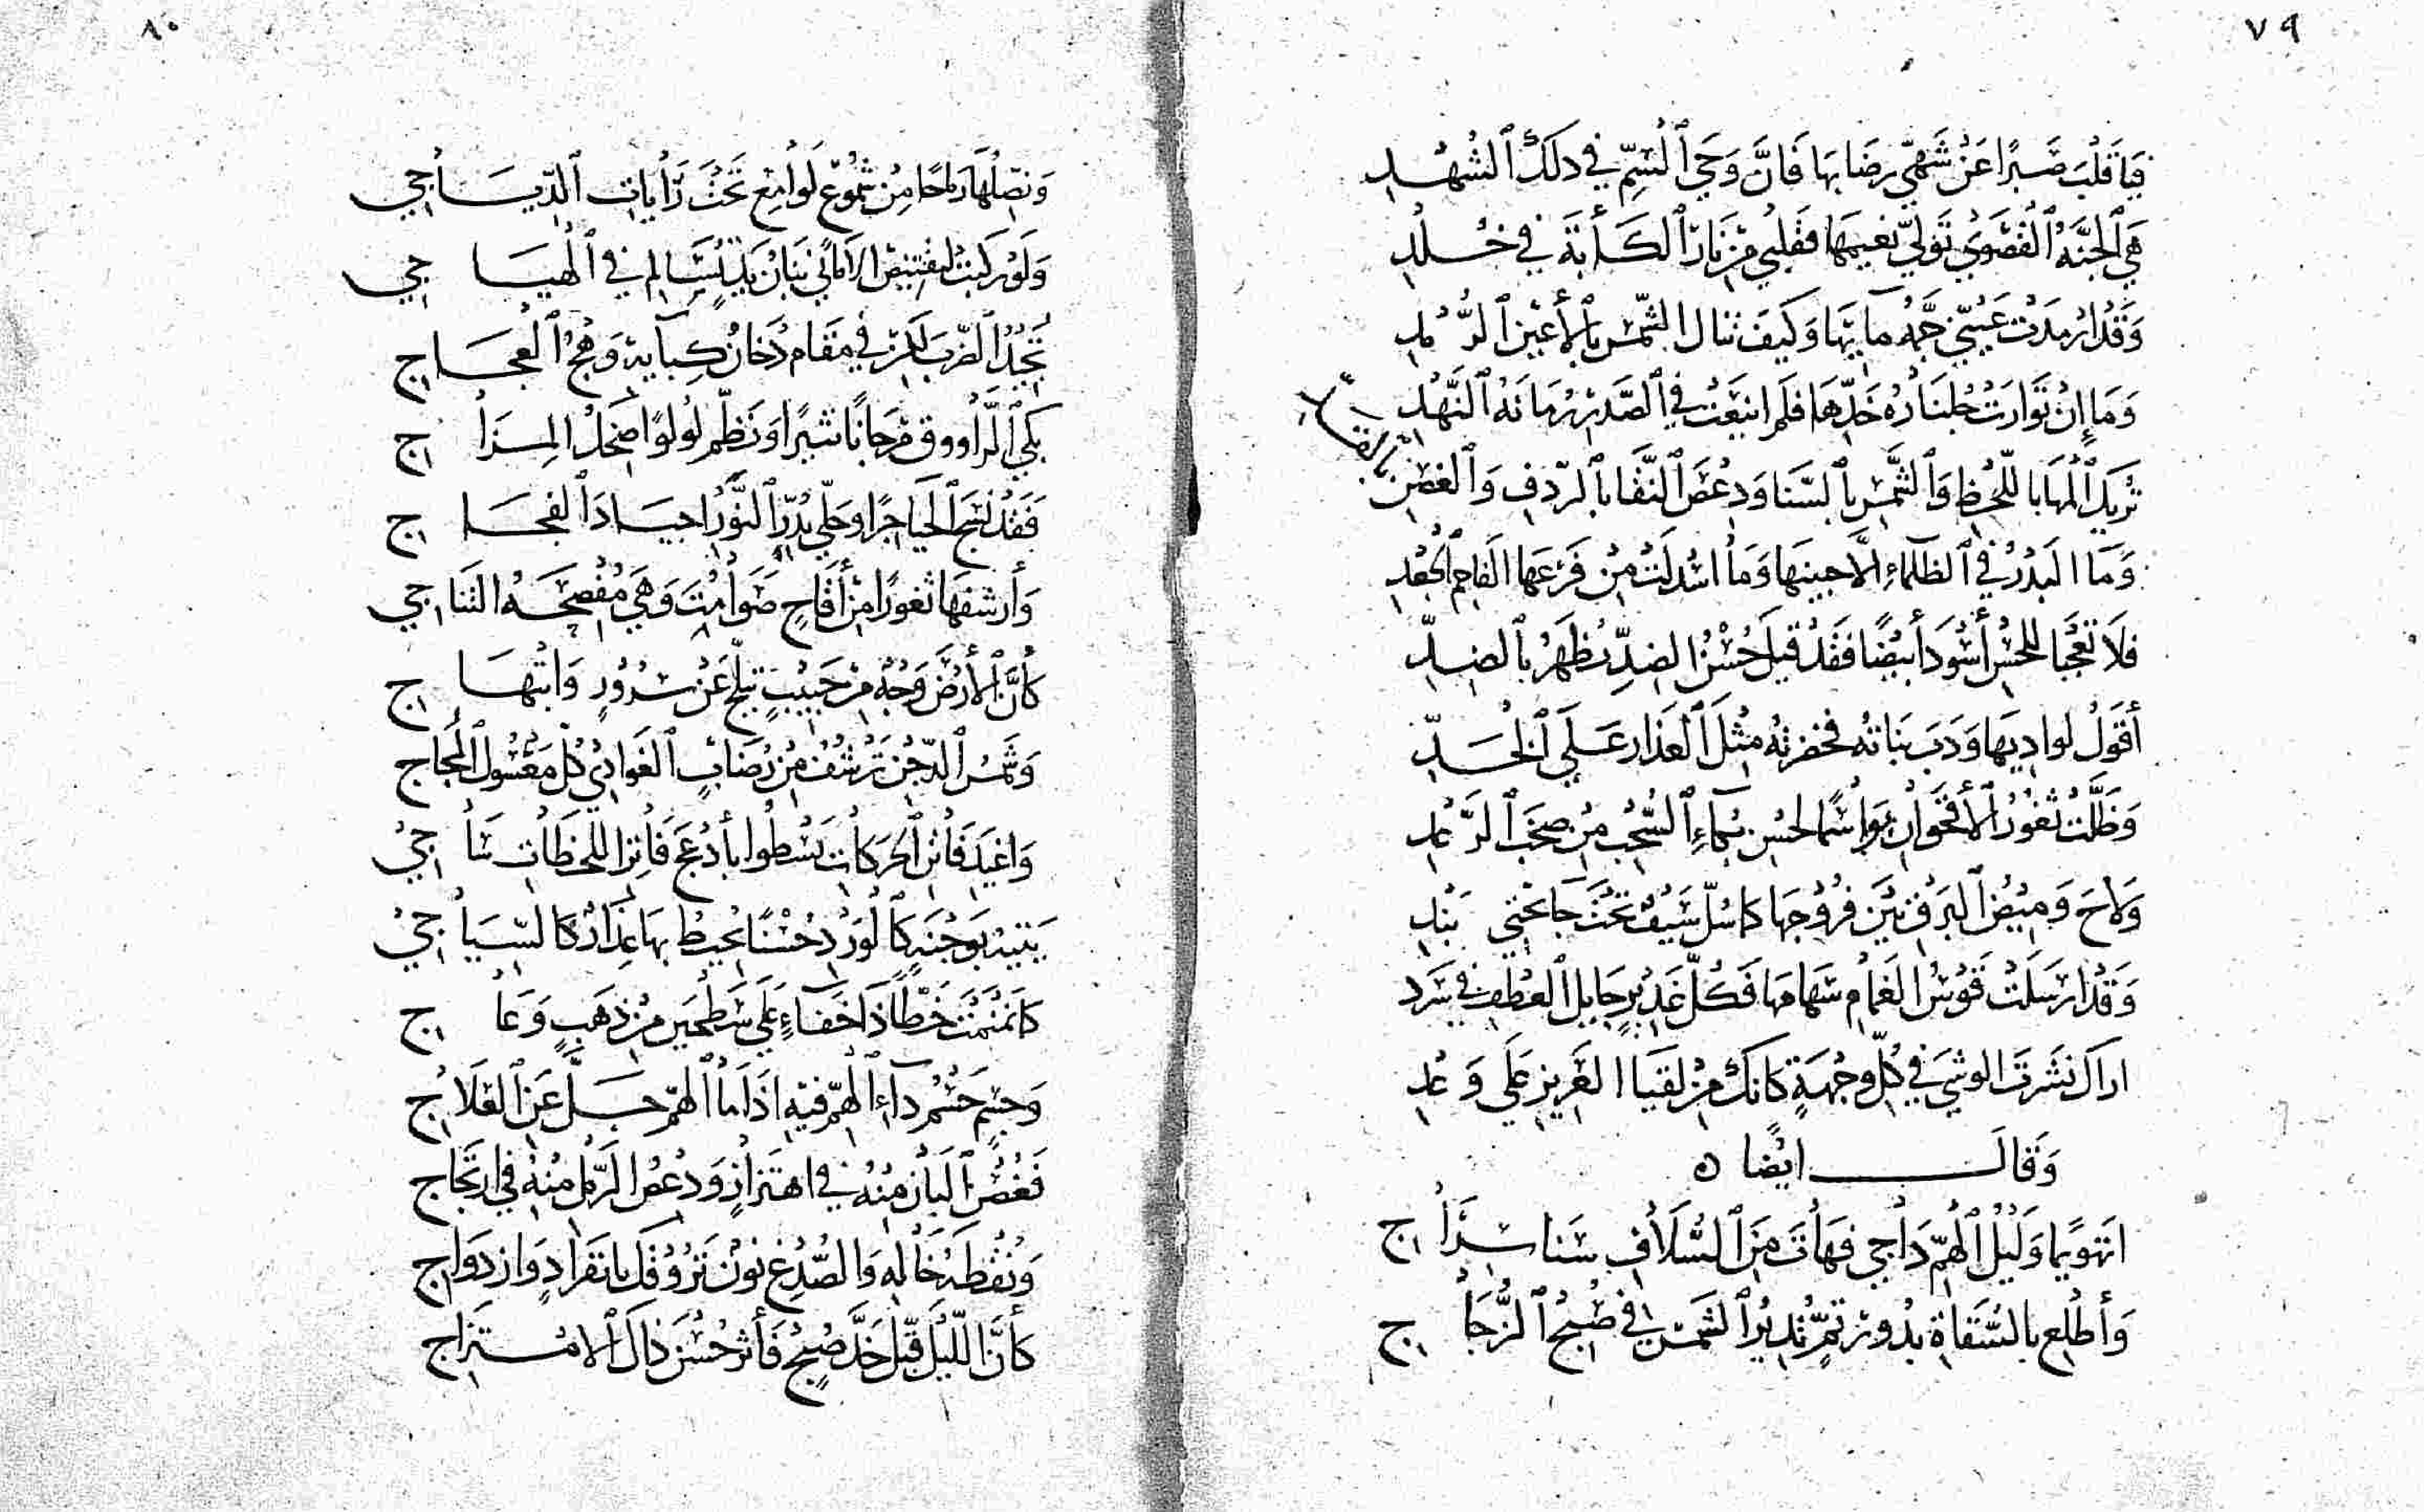 ٧٩
فيا قلب صبرا عن شهي رضابها فان وحي السم في ذلك الشهد
هي الجنة القصوى تولى نعيمها فقلبي من نار الكآبة في خلد
وقد ارمدت عيني حمه مآبها وكيف تنال الشمس بالأعين الرمد
وما إن توارت جلناره خدها فلم اينعت في الصدر رمانة النهد
تريك المها باللحظ والشمس بالسنا ودعص النقا بالردف والغصن بالقد
وما البدر في الظلماء الا جبينها وما اسدلت من فرعها الفاحم الجعد
فلا تعجبا للحسن أسود أبيضا فقد قيل حسن الضد يظهر بالضد
أقول لواديها ودب نباته فخضرته مثل العذار على الخد
وظلت ثغور الأقحوان بواسما لحسن بكاء السحب من صخب الرعد
ولاح وميض البرق بين فروجها كما سل سيف تحت جانحتي بند
وقد ارسلت قوس الغمام سهامها فكل غدير جايل العطف في سرد
اراك نشرت الوشي في كل وجهة كانك من لقيا الغرير على وعد
وقال ايضا
انتهويما وليل الهم داجي فهات من السلاف سنا سراج
وأطلع بالسقاة بدور تم تدير الشمس في صبح الزجاج
٨٠
ونصلها رماحا من شموع لوامع تحت رايات الدياجي
ولو ركبت لتقتنص الاماني بنان يد تسالم في الهياج
تجيد الضرب لكن في مقام دخان كبايه وهج العجاج
بكى الراووق مرجانا نثيرا ونظم لولوا ضحك المزاج
فقد نسج الحيا حبرا وحلى بدر النور اجياد الفجاج
وأرشفها ثغورا من أقاح صوامت وهي مفصحة التناجي
كأن الأرض وجه من حبيب تبلج عن سرور وابتهاج
وشمس الدجن ترشف من رضاب الغوادي كل معسول المجاج
واغيد فاتن الحركات يسطوا بأدعج فاتر اللحظات ساجي
يتيه بوجنة كالورد حسنا يحيط بها عذار كالسياج
كما نمنمت خطا ذا خفاء على سطحين من ذهب وعاج
وجسم حسم داء الهم فيه اذا ما الهم جل عن العلاج
فغصن البان منه في اهتزاز ودعص الرمل منه في ارتجاج
ونقطة خاله والصدغ نون تروقك بانفراد وازدواج
كأن الليل قبل خد صبح فأثر حسن ذاك الامتزاج